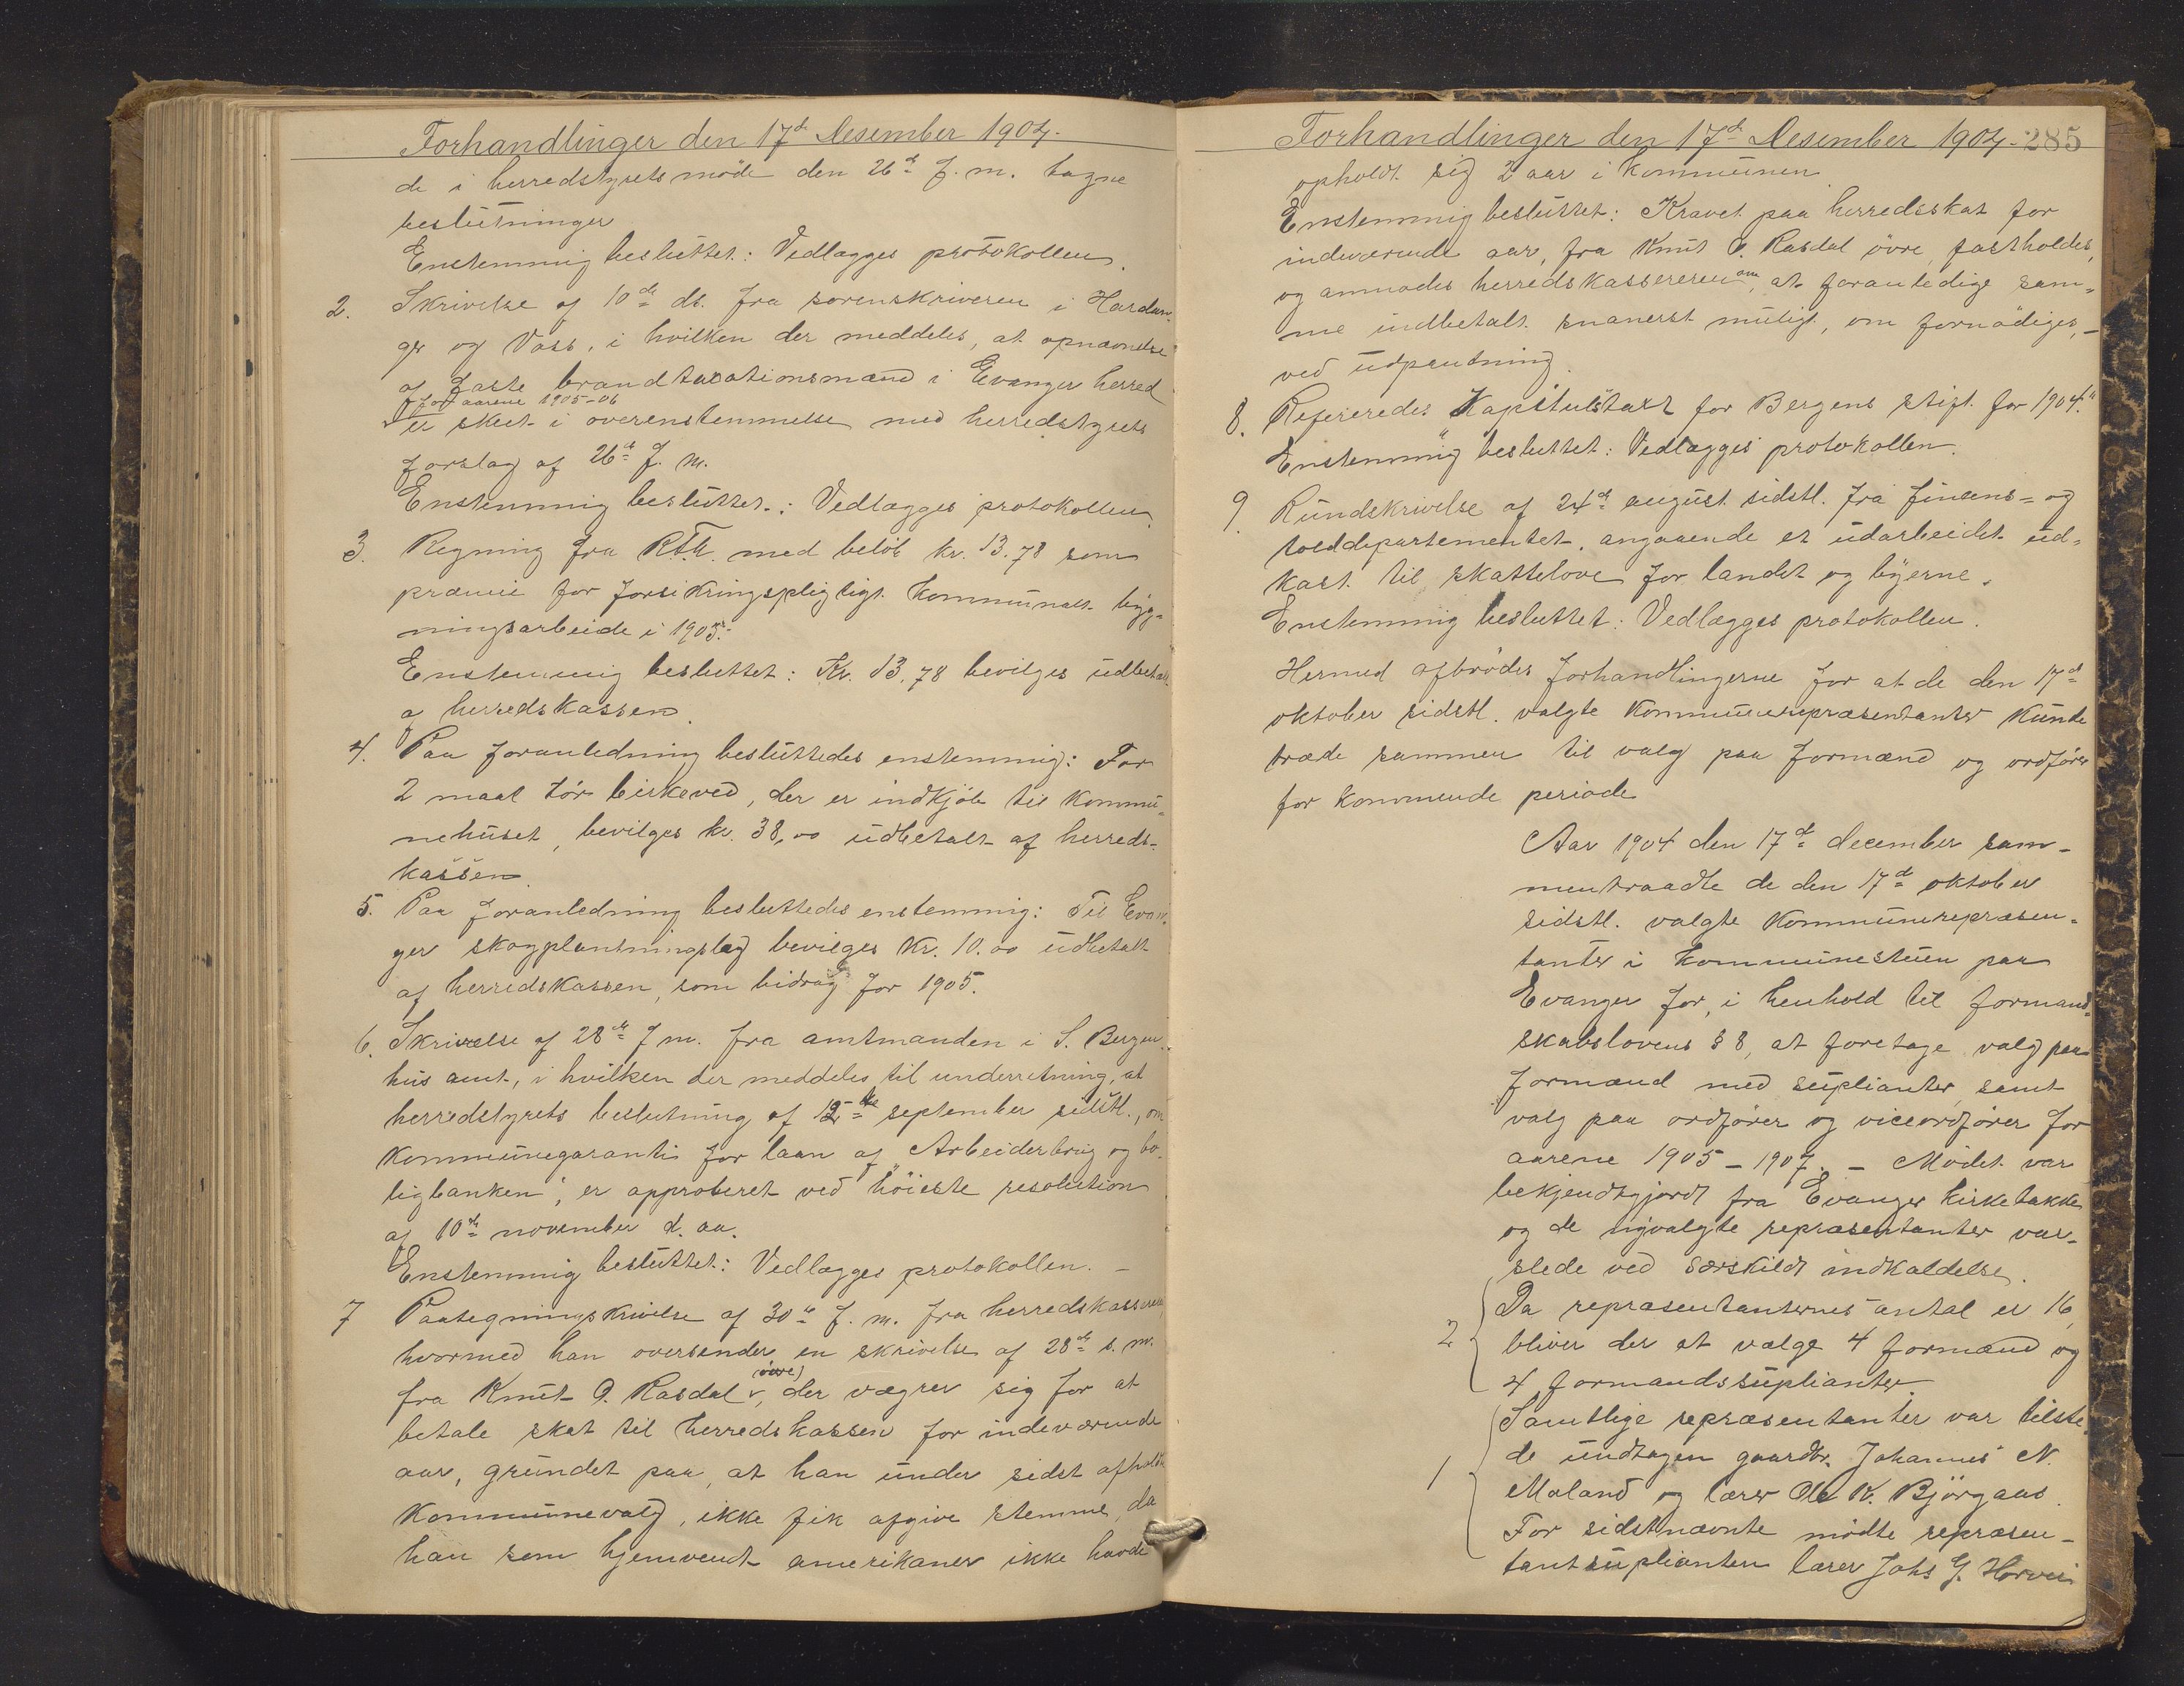 Forhandlinger den 17de Desember 1904.
de i herredstyretsmöde den 26de f. m. tagne
beslutninger
Enstemmig besluttet: Vedlægges protokollen.
2. Skrivelse af 10de ds. fra sorenskriveren i Hardan-
ger og Voss, i hvilken der meddeles, at opnævnelse
af faste brandtaxationsmænd i Evanger herred
for aarene 1905-06
er skeet i overenstemmelse med herredstyrets
forslag af 26de f. m.
Enstemmig besluttet: Vedlægges protokollen.
3. Regning fra R.F.A. med belöb kr. 13.78 som
præmie for forsikringspligtigt kommunalt byg-
ningsarbeide i 1903.
Enstemmig besluttet: Kr. 13,78 bevilges udbetalt
af herredskassen.
4. Paa foranledning besluttedes enstemmig: For
2 maal tör birkeved, der er indkjöbt til kommu-
nehuset, bevilges kr. 38,00 udbetalt af herreds-
kassen
5. Paa foranledning besluttedes enstemmig: Til Evan-
ger skogplantningslag bevilges Kr. 10.00 udbetalt
af herredskassen, som bidrag for 1905.
6. Skrivelse af 28de f m. fra amtmanden i S. Bergen-
hus amt, i hvilken der meddeles til underretning, at
herredstyrets beslutning af 12te september sidstl., om
kommunegaranti for laan af "Arbeiderbrug og bo-
ligbanken", er approberet ved höieste resolution
af 10de november d. aa.
Enstemmig besluttet: Vedlægges protokollen. –
7 Paategningsskrivelse af 30te f. m. fra herredskasseren,
hvormed han oversender en skrivelse af 28de s. m.
(övre)
fra Knut O. Rasdal, der vægrer sig for at
betale skat til herredskassen for indeværende
aar, grundet paa, at han under sidst afholdte
kommunevalg, ikke fik afgive stemme, da
han som hjemvendt amerikaner ikke havde
Forhandlinger den 17de Desember 1904. 285
opholdt sig 2 aar i kommunen
Enstemmig besluttet: Kravet paa herredsskat for
indeværende aar, fra Knut O. Rasdal övre, fastholdes,
og anmodes herredskassereren om, at foranledige sam-
me indbetalt snarest muligt, om fornödiges, –
ved udpantning.
8. Refereredes "Kapitulstaxt for Bergens stift for 1904."
Enstemmig besluttet: Vedlægges protokollen.
9. Rundskrivelse af 24de august sidstl. fra finans- og
tolddepartementet, angaaende et udarbeidet ud-
kast til skattelove for landet og byerne.
Enstemmig besluttet: Vedlægges protokollen.
Hermed afbrödes forhandlingerne for at de den 17de
oktober sidstl. valgte kommunerepræsentanter kunde
træde sammen til valg paa formænd og ordförer
for kommende periode
Aar 1904 den 17de december sam-
mentraadte de den 17de oktober
sidstl. valgte kommunerepræsen-
tanter i kommunestuen paa
Evanger for, i henhold til formand-
skabslovens § 8, at foretage valg paa
formænd med suplianter, samt
valg paa ordförer og viceordförer for
aarene 1905 – 1907. – Mödet var
bekjendtgjordt fra Evanger kirkebakke
og de nyvalgte repræsentanter var-
slede ved særskildt indkaldelse.
2 Da repræsentanternes antal er 16,
bliver der at vælge 4 formænd og
4 formandssuplianter.
1 Samtlige repræsentanter var tilste-
de undtagen gaardbr. Johannes N.
Moland og lærer Ole K. Björgaas.
For sidstnævnte mödte repræsen-
tantsuplianten lærer Johs J. Horvei